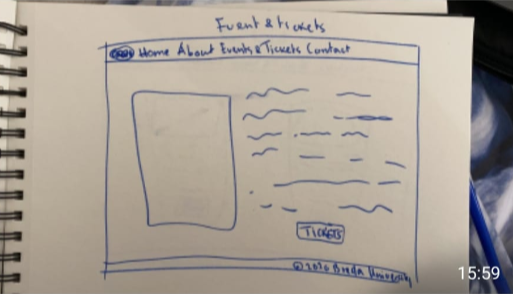 Event & tickets
Home About Events & Tickets Contact
TICKETS
© 2020 Breda University
15:59